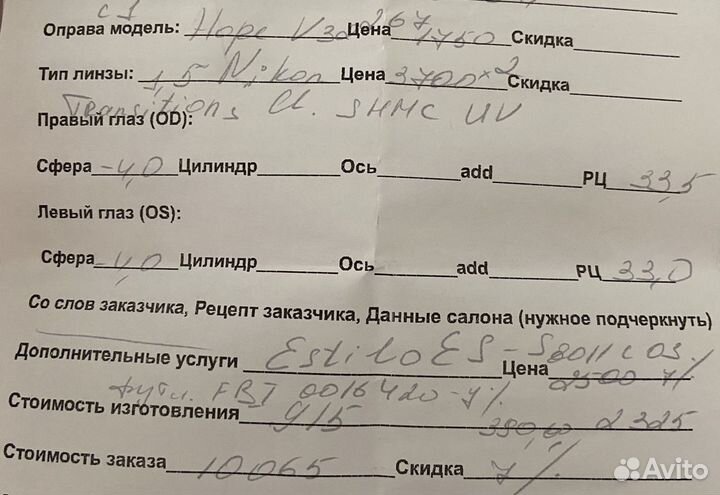 c1
Оправа модель: Hope V30 267 Цена 1750 Скидка
Тип линзы: 1,5 Nikon Цена 3700 x 2 Скидка
Transitions Cl. SHMC UV
Правый глаз (OD):
Сфера -4,0 Цилиндр Ось add РЦ 33,5
Левый глаз (OS):
Сфера -4,0 Цилиндр Ось add РЦ 33,0
Со слов заказчика, Рецепт заказчика, Данные салона (нужное подчеркнуть)
Дополнительные услуги Estilo ES-S8011 c 03. Цена 2500 7%
футл. FBT 0016420-7% 390,00 2325
Стоимость изготовления 915
Стоимость заказа 10065 Скидка 7%
Avito